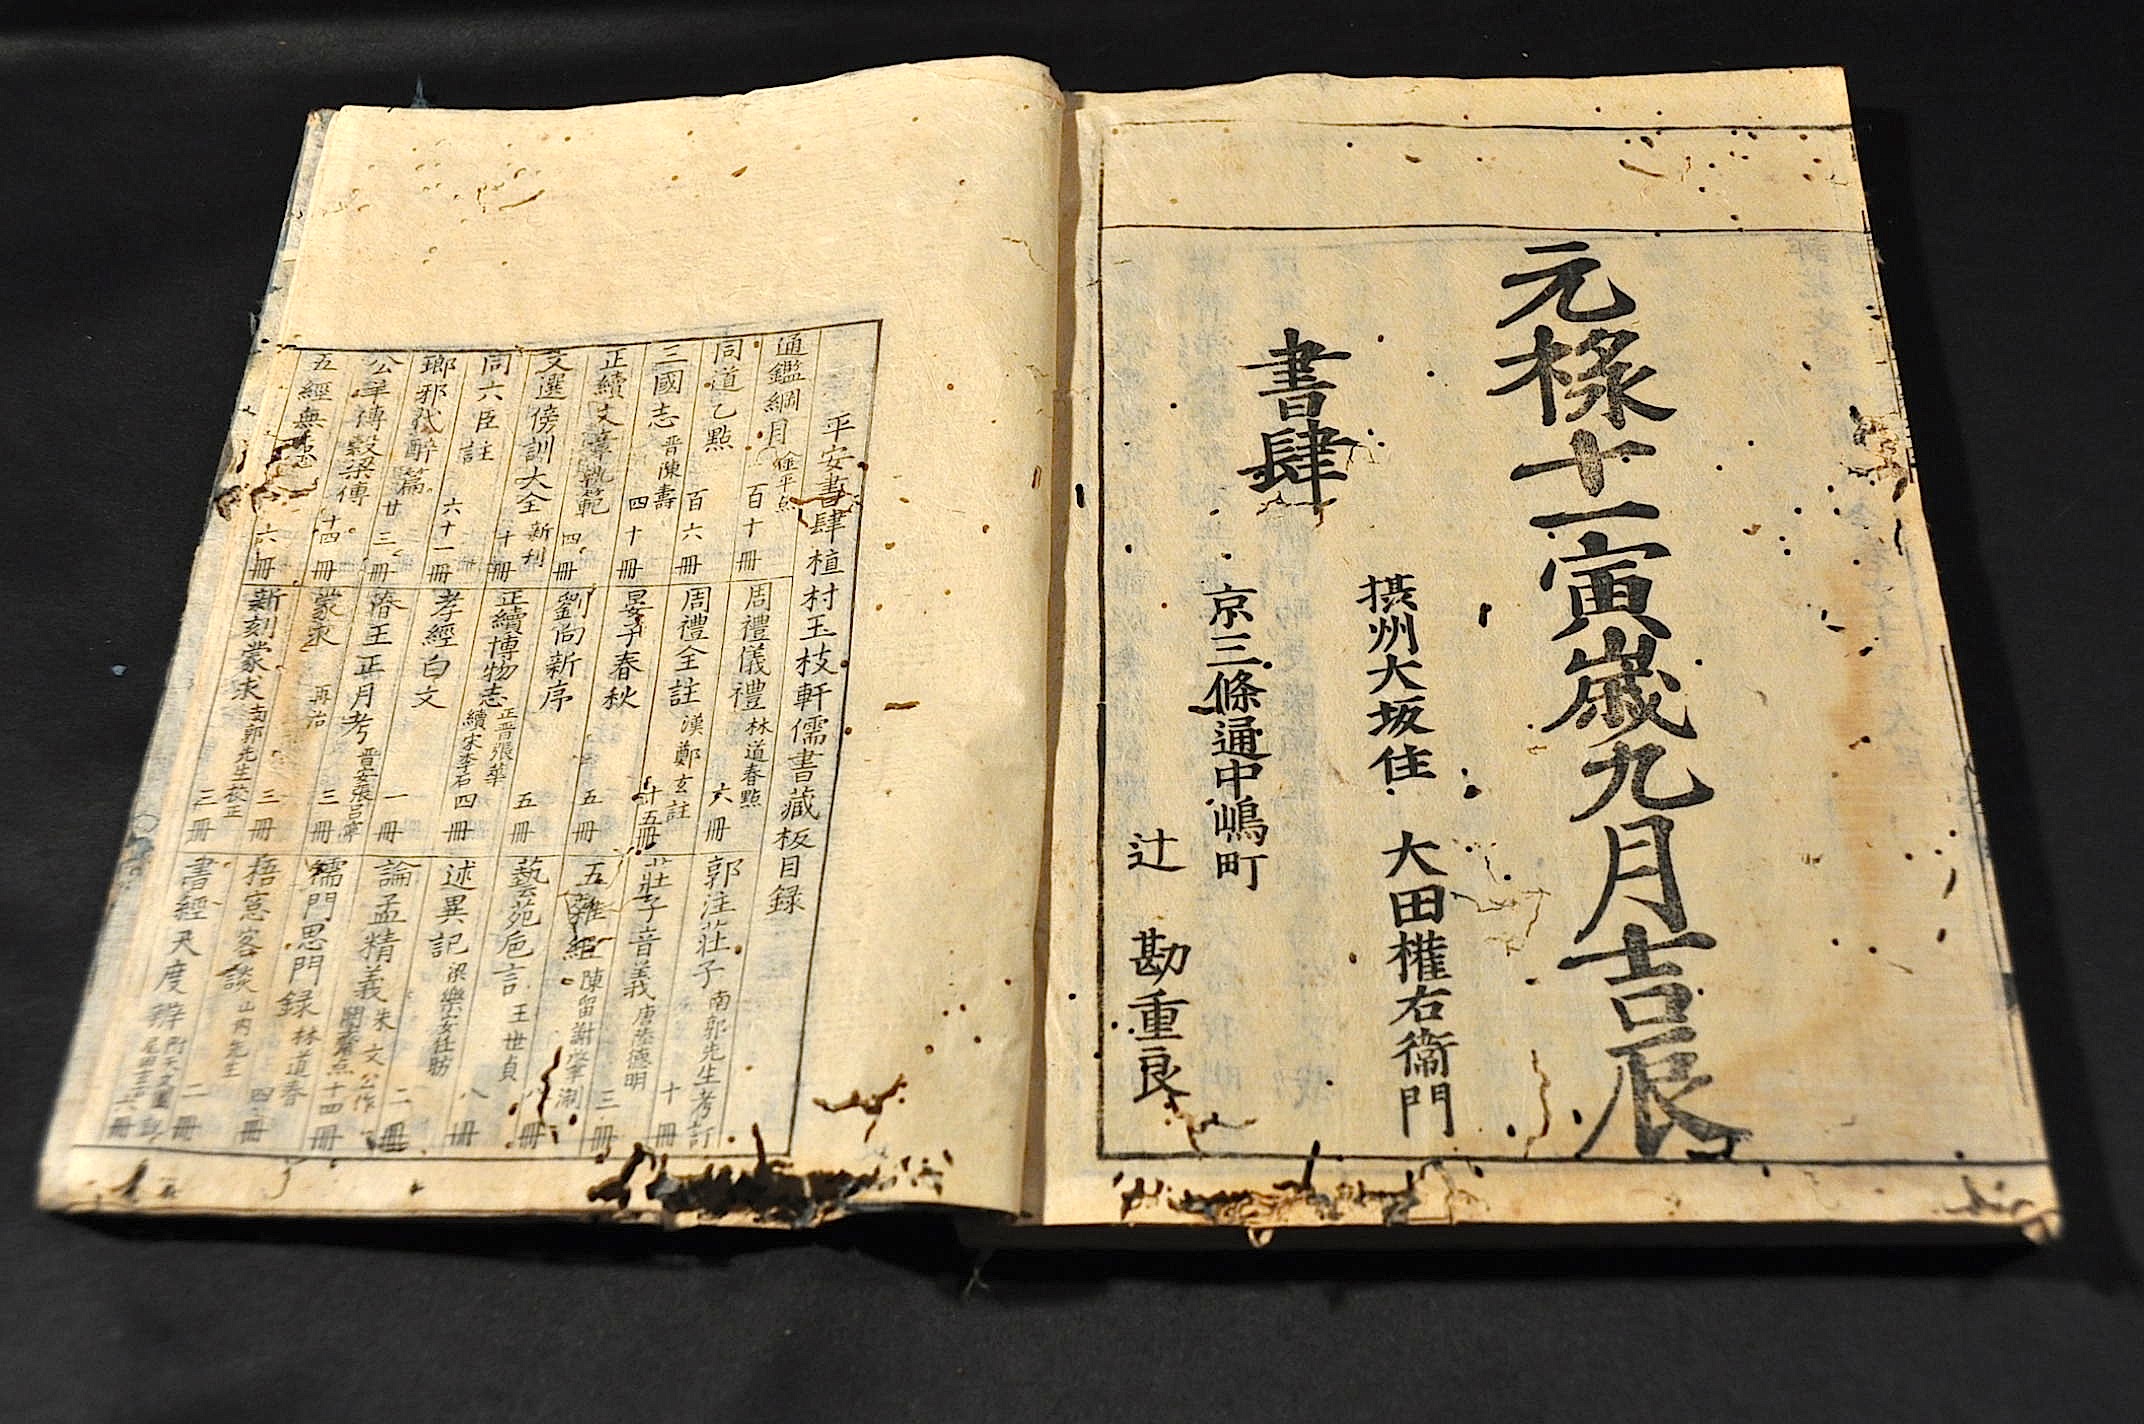 元祿十一寅歳九月吉辰
書肆
摂州大坂住 大田權右衛門
京三條通中嶋町
辻 勘重良
平安書肆植村玉枝軒儒書藏板目録
通鑑綱目 百十冊
同道乙點 百六冊
三國志 晋陳壽 四十冊
正續文章軌範 四冊
文選傍訓大全 新刻 十冊
同六臣註 六十一冊
瑯邪代醉篇 廿三冊
公羊傳穀梁傳 十四冊
五經無點 六冊
周禮儀禮 林道春點 六冊
周禮全註 漢鄭玄註 計五冊
晏子春秋 五冊
劉向新序 五冊
正續博物志 正晋張華 續宋李石 四冊
孝經白文 一冊
春王正月考 三冊
蒙求 再治 三冊
新刻蒙求 南郭先生校正 三冊
郭注莊子 南郭先生考訂 十冊
莊子音義 唐陸德明 三冊
五雜組 陳留謝肇淛 八冊
藝苑巵言 王世貞 八冊
述異記 梁樂安任昉 二冊
論孟精義 朱文公作 十四冊
儒門思問録 林道春 四冊
梧窓客談 山内先生 二冊
書經天度辨 六冊